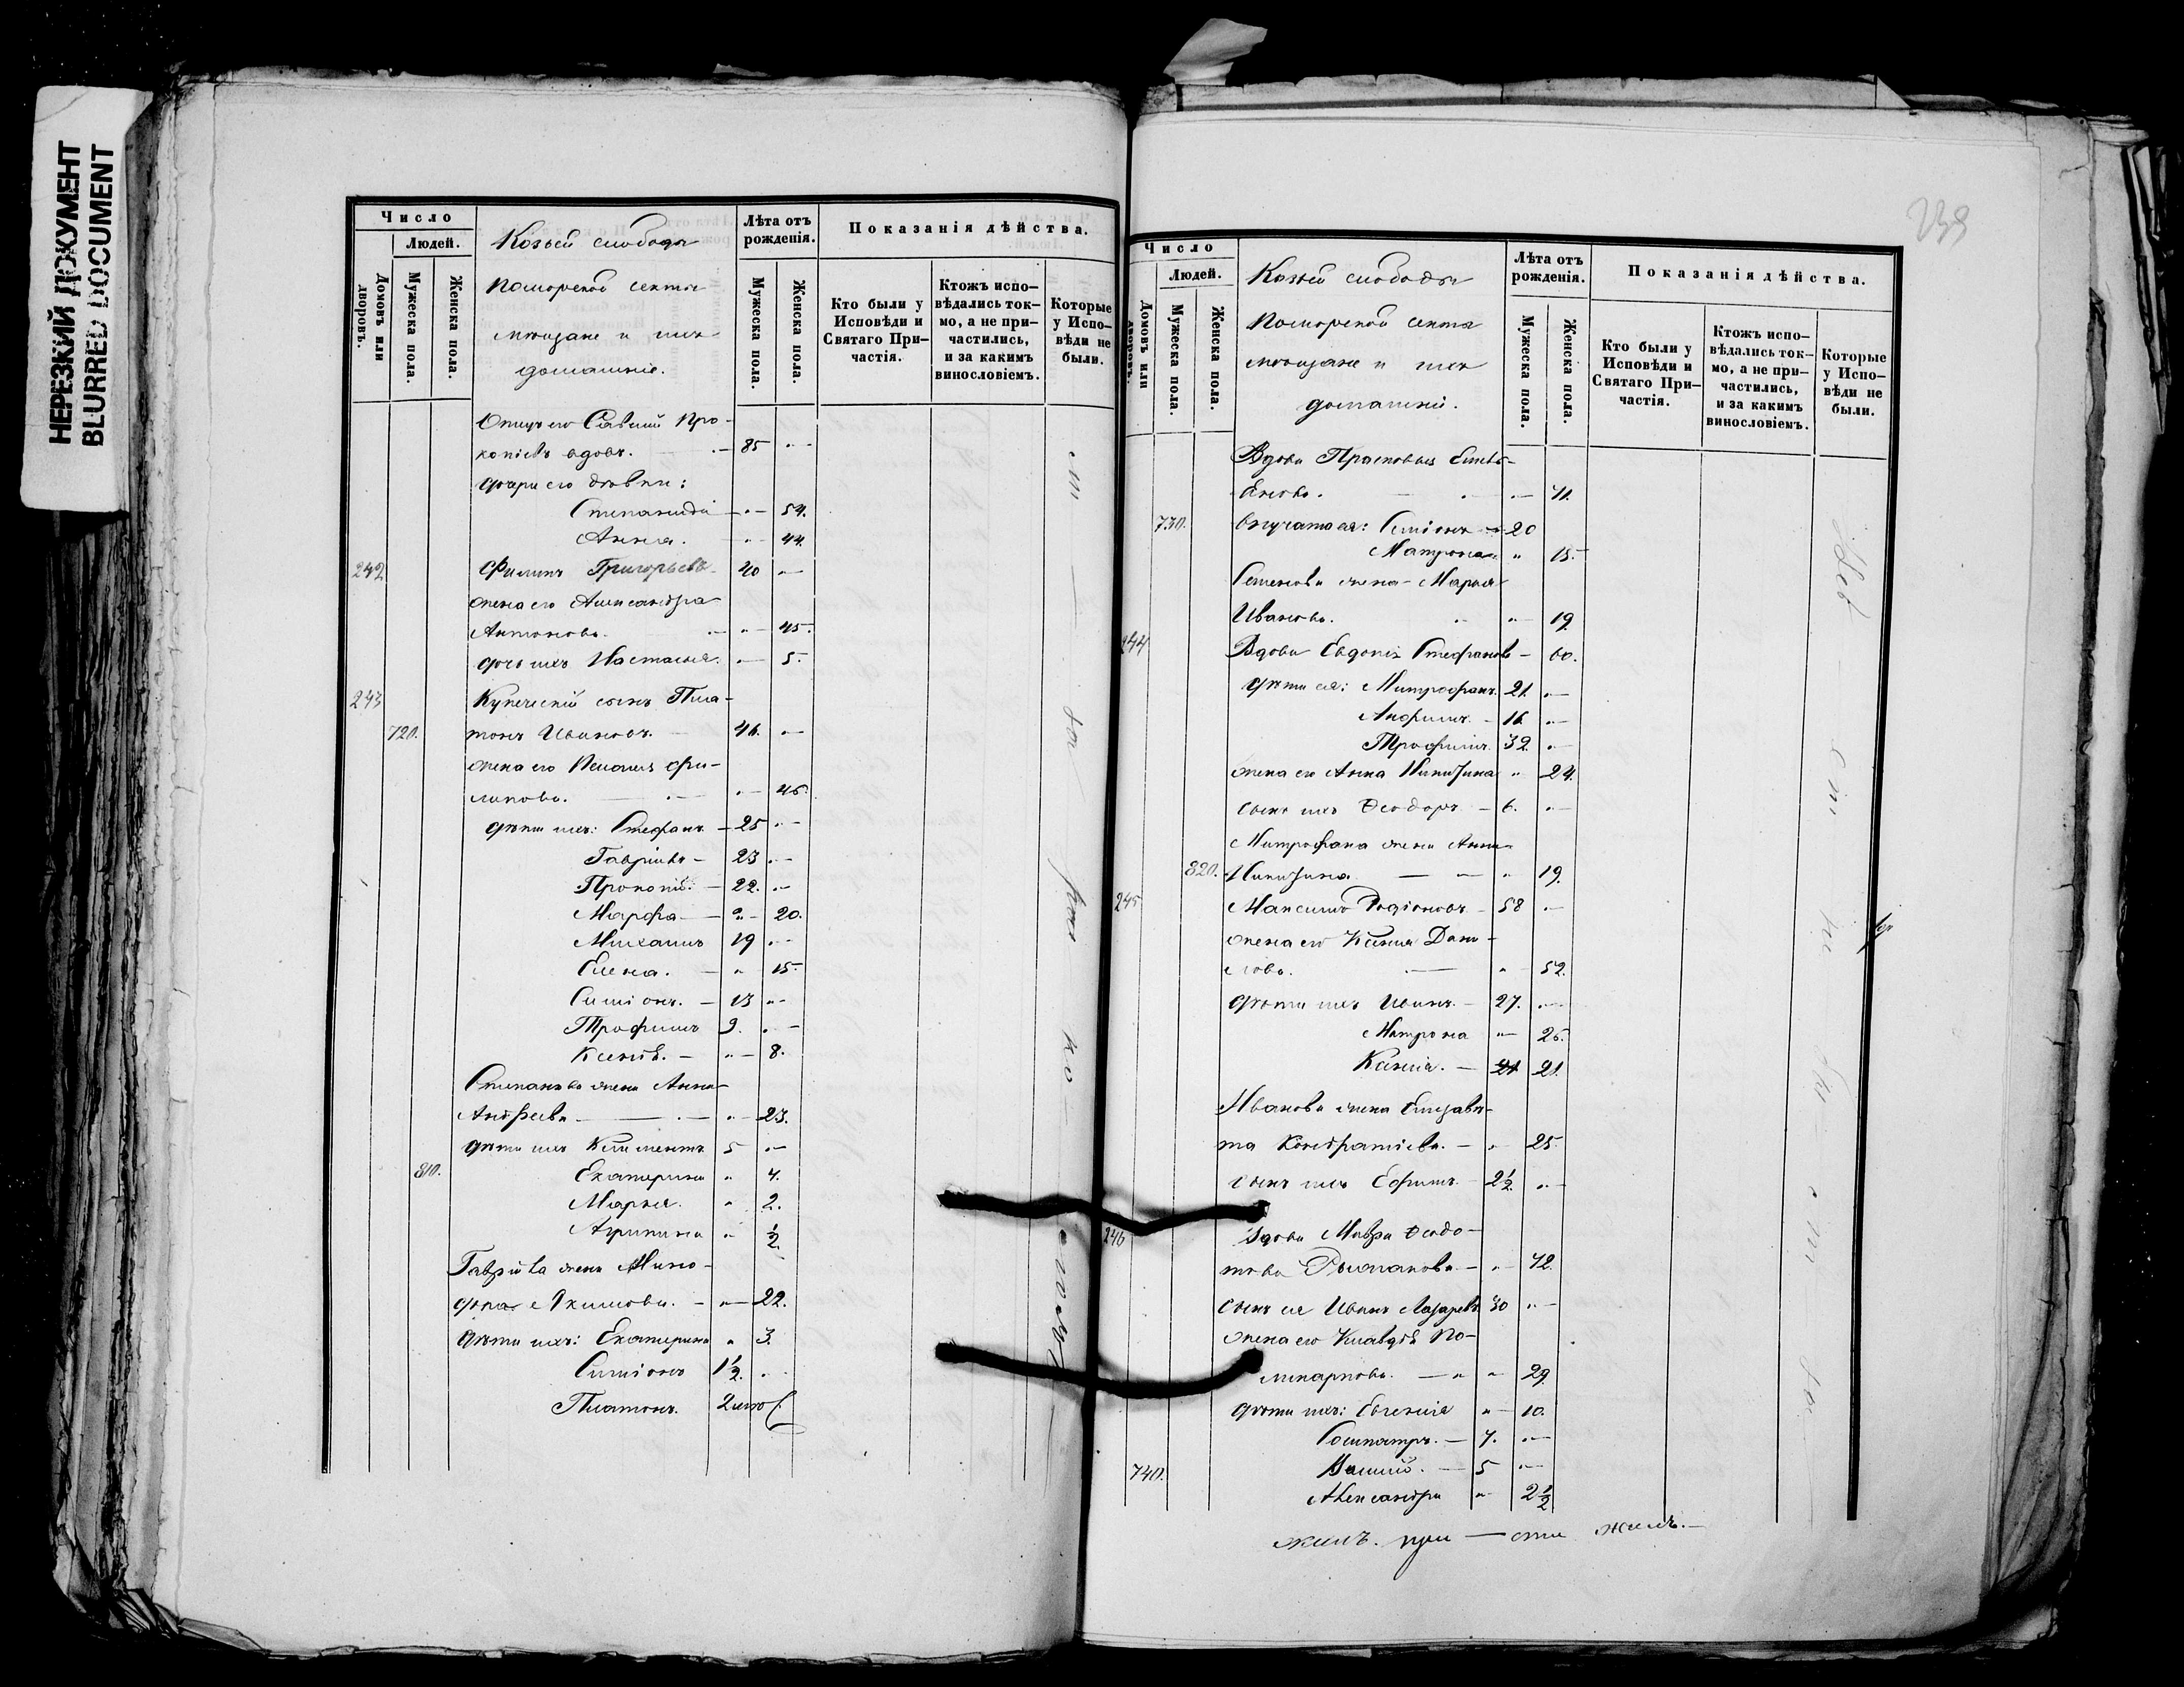 НЕРЕЗКИЙ ДОКУМЕНТ
BLURRED DOCUMENT
Число
Людей.
Домовъ или дворовъ.
Мужеска пола.
Женска пола.
Козьей слободы
Поморской секты
мѣщане и ихъ
домашніе.
Лѣта отъ рожденія.
Мужеска пола.
Женска пола.
Показанія дѣйства.
Кто были у Исповѣди и Святаго Причастія.
Ктожъ исповѣдались токмо, а не причастились, и за какимъ винословіемъ.
Которые у Исповѣди не были.
Отецъ его Савелій Про-
копіевъ вдовъ. 85
дочери его дѣвки:
Степанида 54.
Анна. 44.
242 Филипъ Григорьевъ 40
жена его Александра
Антонова. 45.
дочь ихъ Настасья. 5.
243 Купеческій сынъ Пла-
720. тонъ Ивановъ. 46.
жена его Пелагія Фи-
липова. 46.
дѣти ихъ: Стефанъ 25
Гавріилъ 23
Прокопій. 22.
Марфа 20.
Михаилъ 19
Елена. 15.
Симіонъ. 13
Трофимъ 9.
Ксенія. 8.
Степанова жена Анна
Андреева 23.
дѣти ихъ Климентъ 5
810. Екатерина 4.
Марья. 2.
Агрипина ½
Гавріила жена Мино-
дора Якимова. 22.
дѣти ихъ: Екатерина 3.
Симіонъ 1½.
Платонъ.
Число
Людей.
Домовъ или дворовъ.
Мужеска пола.
Женска пола.
Козьей слободы
Поморской секты
мѣщане и ихъ
домашніе.
Лѣта отъ рожденія.
Мужеска пола.
Женска пола.
Показанія дѣйства.
Кто были у Исповѣди и Святаго Причастія.
Ктожъ исповѣдались токмо, а не причастились, и за какимъ винословіемъ.
Которые у Исповѣди не были.
Вдова Прасковья
730. внучата ея: Симіонъ 20
Матрона 15.
Семенова жена Марья
Иванова. 19.
244 Вдова Евдокія Стефанов 60.
дѣти ея: Митрофанъ. 21.
16.
Трофимъ. 32.
жена его Анна Никитина 24.
сынъ ихъ Ѳеодоръ 6.
Митрофана жена Анна
820. Никитина. 19.
245 Максимъ Родіоновъ 58
жена его Ксенія Дани-
лова. 52.
дѣти ихъ Иванъ. 27.
Матрона 26.
Ксенія. 21.
Иванова жена Елизаве-
та Кондратіева. 25.
сынъ ихъ Ефимъ. 2½.
246 Вдова Мавра Ѳедо-
това 72.
сынъ ея Иванъ Лазаревъ 30
жена его Клавдія По-
ликарпова. 29.
дѣти ихъ: Евгенія 10.
Сосипатръ. 7.
740. Василій. 5
Александра 2½